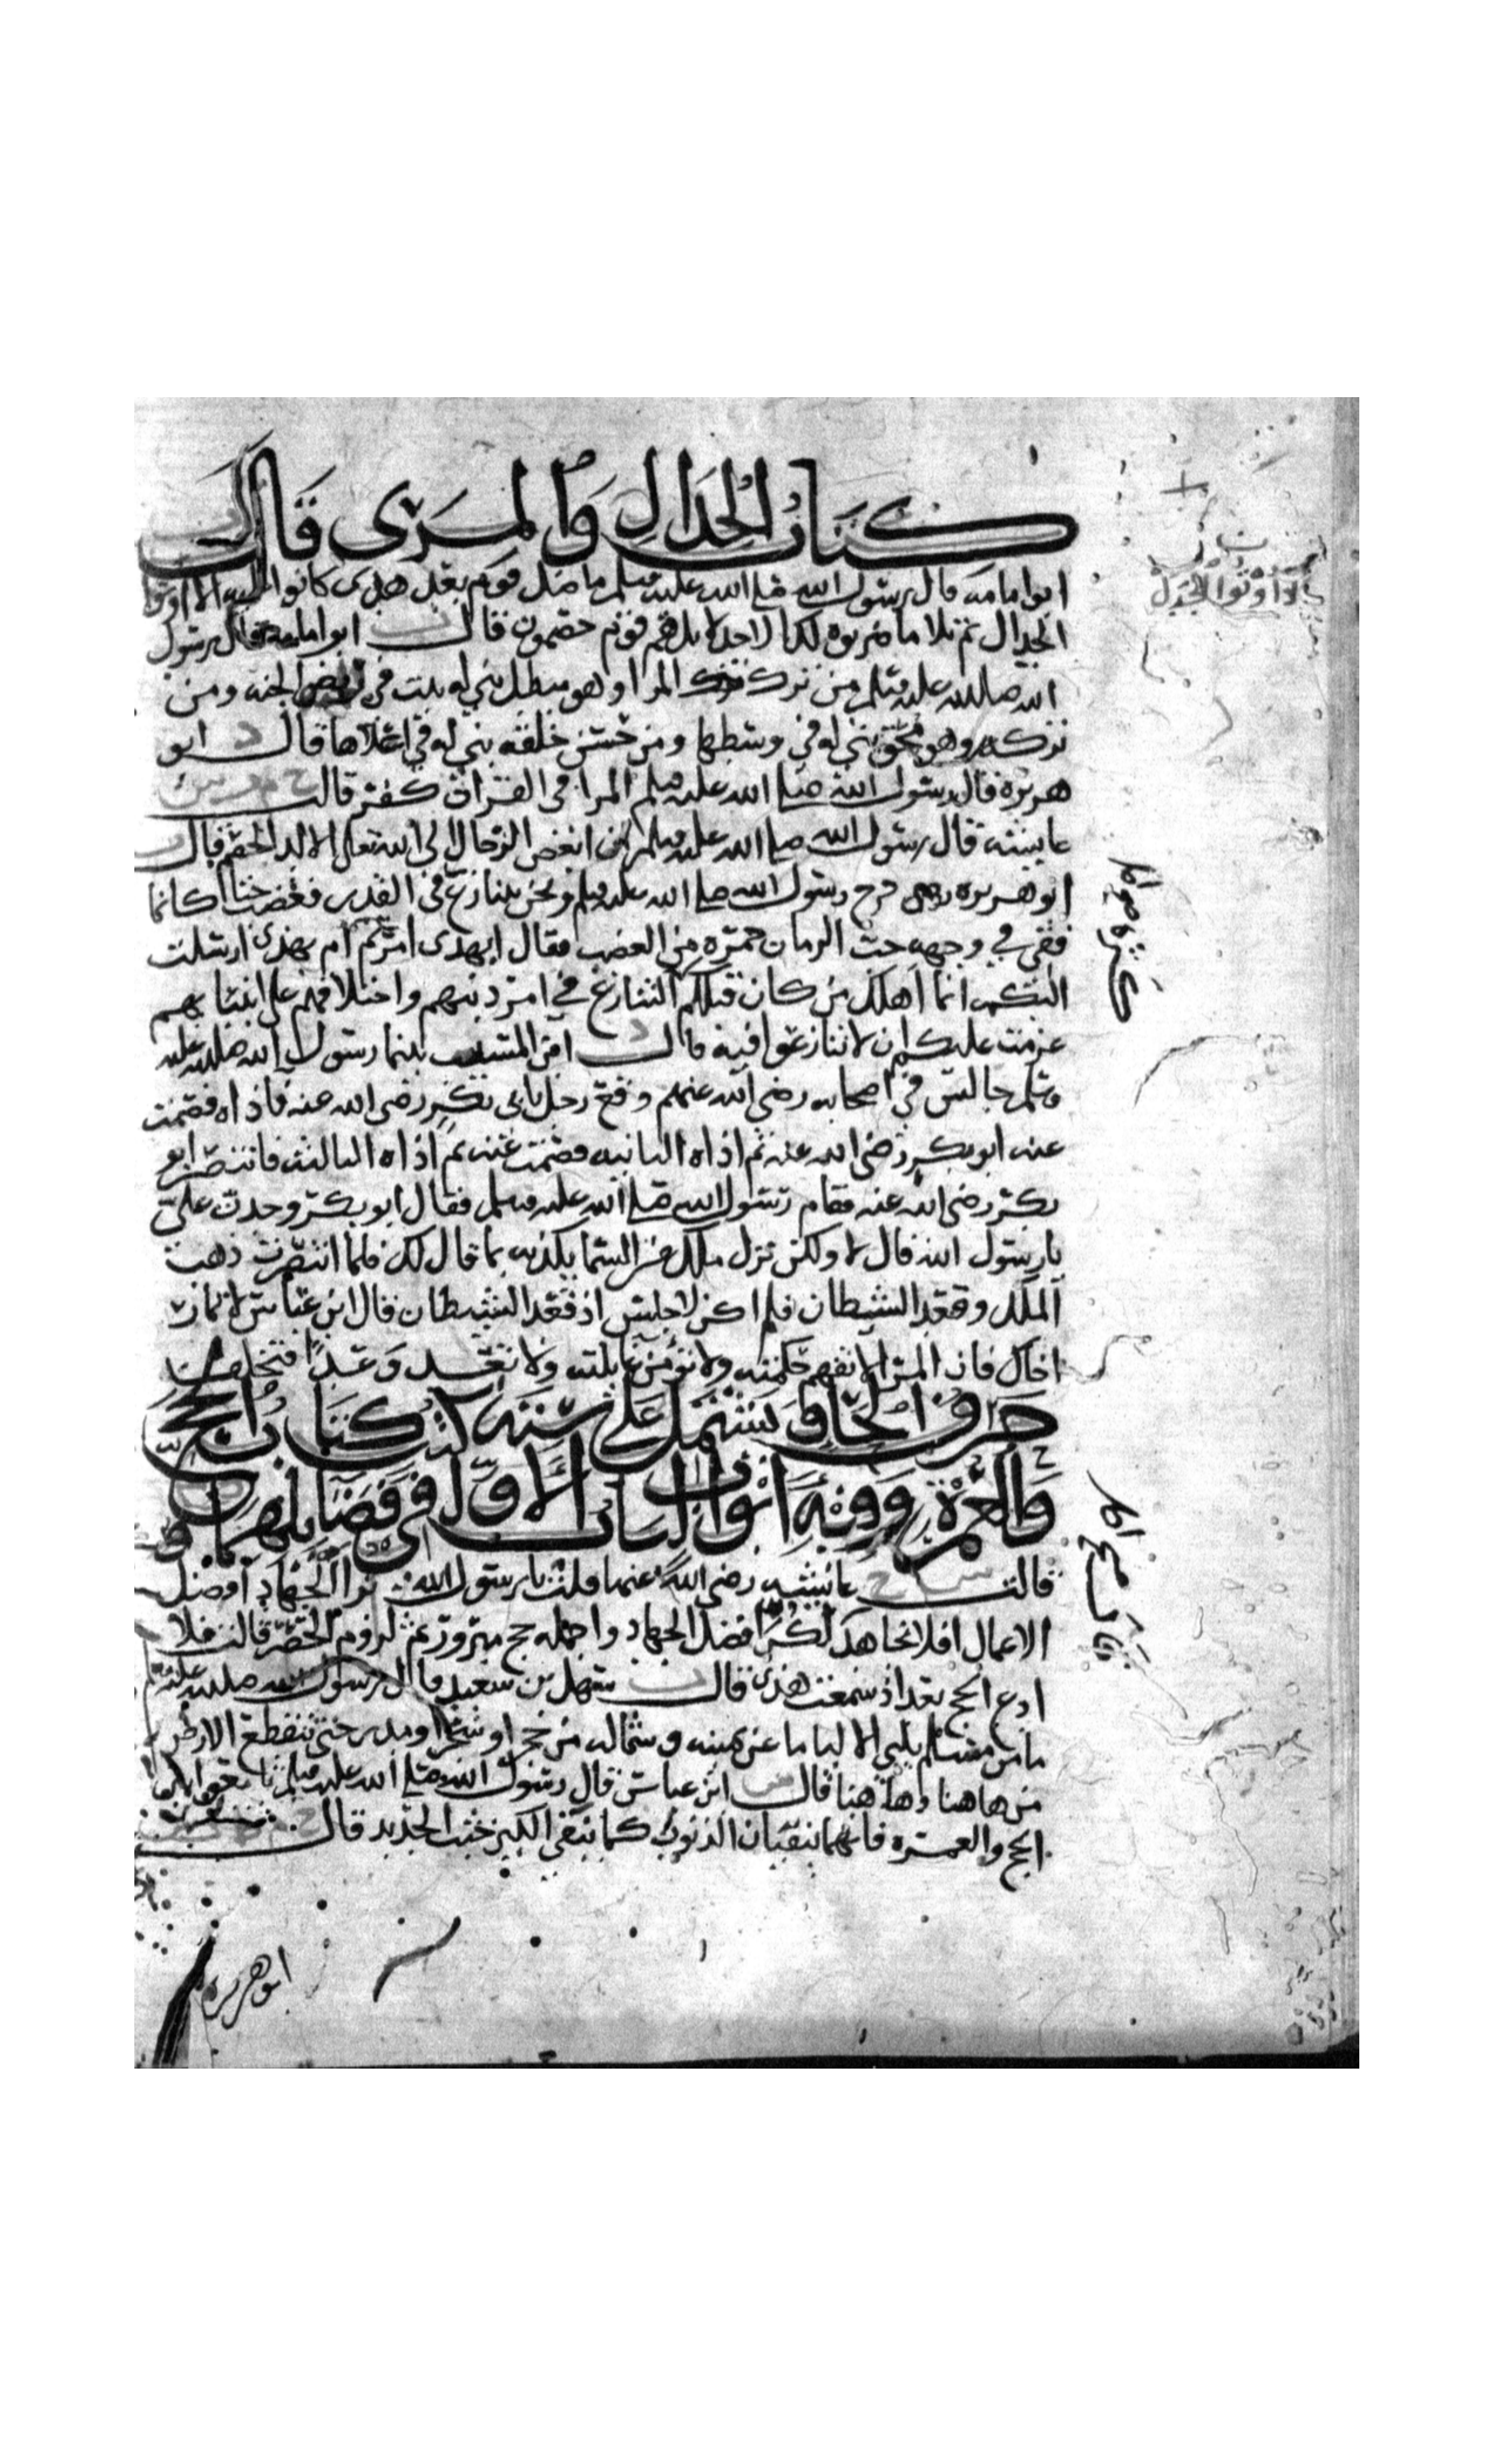 كتاب الجدال والمرى قال
ابو امامه قال رسول الله صلى الله عليه وسلم ما ضل قوم بعد هدى كانوا عليه الا اوتوا
الجدال ثم تلا ما ضربوه لك الا جدلا بل هم قوم خصمون قال ابو امامه قال رسول
الله صلى الله عليه وسلم من ترك المرا وهو مبطل بني له بيت في ربض الجنه ومن
تركه وهو محق بني له في وسطها ومن حسن خلقه بني له في اعلاها قال د ابو
هريره قال رسول الله صلى الله عليه وسلم المرا في القران كفر قالت خ م
عايشه قال رسول الله صلى الله عليه وسلم ان ابغض الرجال الى الله تعالى الالد الخصم قال ت
ابو هريره خرج رسول الله صلى الله عليه وسلم ونحن نتنازع في القدر فغضب حتى كانما
فقي في وجهه حب الرمان حمره من الغضب فقال ابهذى امرتم ام بهذى ارسلت
اليكم انما اهلك من كان قبلكم التنازع في امر دينهم واختلافهم على انبيايهم
عزمت عليكم ان لا تنازعوا فيه قال د ابن المسيب بينما رسول الله صلى الله عليه
وسلم جالس في اصحابه رضى الله عنهم وقع رجل بابى بكر رضى الله عنه فاذاه فصمت
عنه ابو بكر رضى الله عنه ثم اذاه الثانيه فصمت عنه ثم اذاه الثالثه فانتصر ابو
بكر رضى الله عنه فقام رسول الله صلى الله عليه وسلم فقال ابو بكر وجدت علي
يا رسول الله قال لا ولكن نزل ملك من السما يكذبه بما قال لك فلما انتصرت ذهب
الملك وقعد الشيطان فلم اكن لاجلس اذ قعد الشيطان قال ابن عباس لا تمار
اخاك فان المرا لا تفهم حكمته ولا تؤمن غايلته ولا تعد وعدا فتخلفه
حرف الحا وتشتمل على سته كتب كتاب الحج
والعمرة وفيه ابواب الباب الاول في فضايلهما
قالت خ س عايشه رضى الله عنها قلت يا رسول الله نرا الجهاد افضل
الاعمال افلا نجاهد لكن افضل الجهاد واجمله حج مبرور ثم لزوم الحصر قالت فلا
ادع الحج بعد اذ سمعت هذى قال ت سهل بن سعيد قال رسول الله صلى الله عليه وسلم
ما من مسلم يلبي الا لبا ما عن يمينه وشماله من حجر او شجر او مدر حتى تنقطع الارض
من هاهنا وهاهنا قال س ابن عباس قال رسول الله صلى الله عليه وسلم تابعوا بين
الحج والعمره فانهما ينفيان الذنوب كما ينفي الكير خبث الحديد قال
ابو هريره